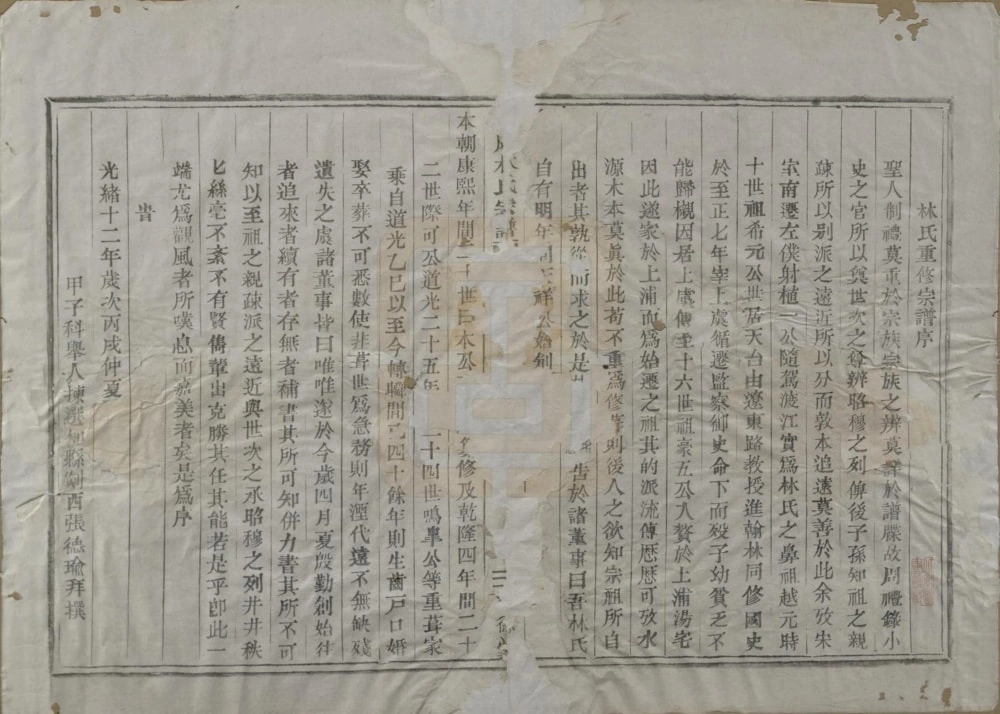 林氏重修宗譜序
聖人制禮莫重於宗族宗族之辨莫詳於譜牒故周禮錄小
史之官所以奠世次之尊辨昭穆之列俾後子孫知祖之親
疎所以別派之遠近所以分而敦本追遠莫善於此余攷宋
室南遷左僕射植一公隨駕渡江實爲林氏之鼻祖越元時
十世祖希元公世居天台由遼東路教授進翰林同修國史
於至正七年宰上虞循遷監察御史命下而歿子幼貧乏不
能歸櫬因居上虞傳至十六世祖豪五公入贅於上浦湯宅
因此遂家於上浦而爲始遷之祖其的派流傳歷歷可攷水
源木本莫眞於此苟不重爲修則後人之欲知宗祖所自
出者其孰從而求之於是告於諸董事曰吾林氏
自有明年間祥公始創
本朝康熙年間二十世本公修及乾隆四年間二十
二世際可公道光二十五年二十四世鳴臯公等重葺家
乘自道光乙巳以至今轉瞬間已四十餘年則生齒戸口婚
娶卒葬不可悉數使非葺世爲急務則年湮代遠不無缺殘
遺失之虞諸董事皆曰唯唯遂於今歲四月夏殷勤創始往
者追來者續有者存無者補書其所可知併力書其所不可
知以至祖之親疎派之遠近與世次之承昭穆之列井井秩
匕絲毫不紊不有賢儁輩出克勝其任其能若是乎卽此一
端尤爲觀風者所嘆息而嘉美者矣是爲序
旹
光緒十二年歲次丙戌仲夏
甲子科舉人揀選知縣剡西張德瑜拜撰